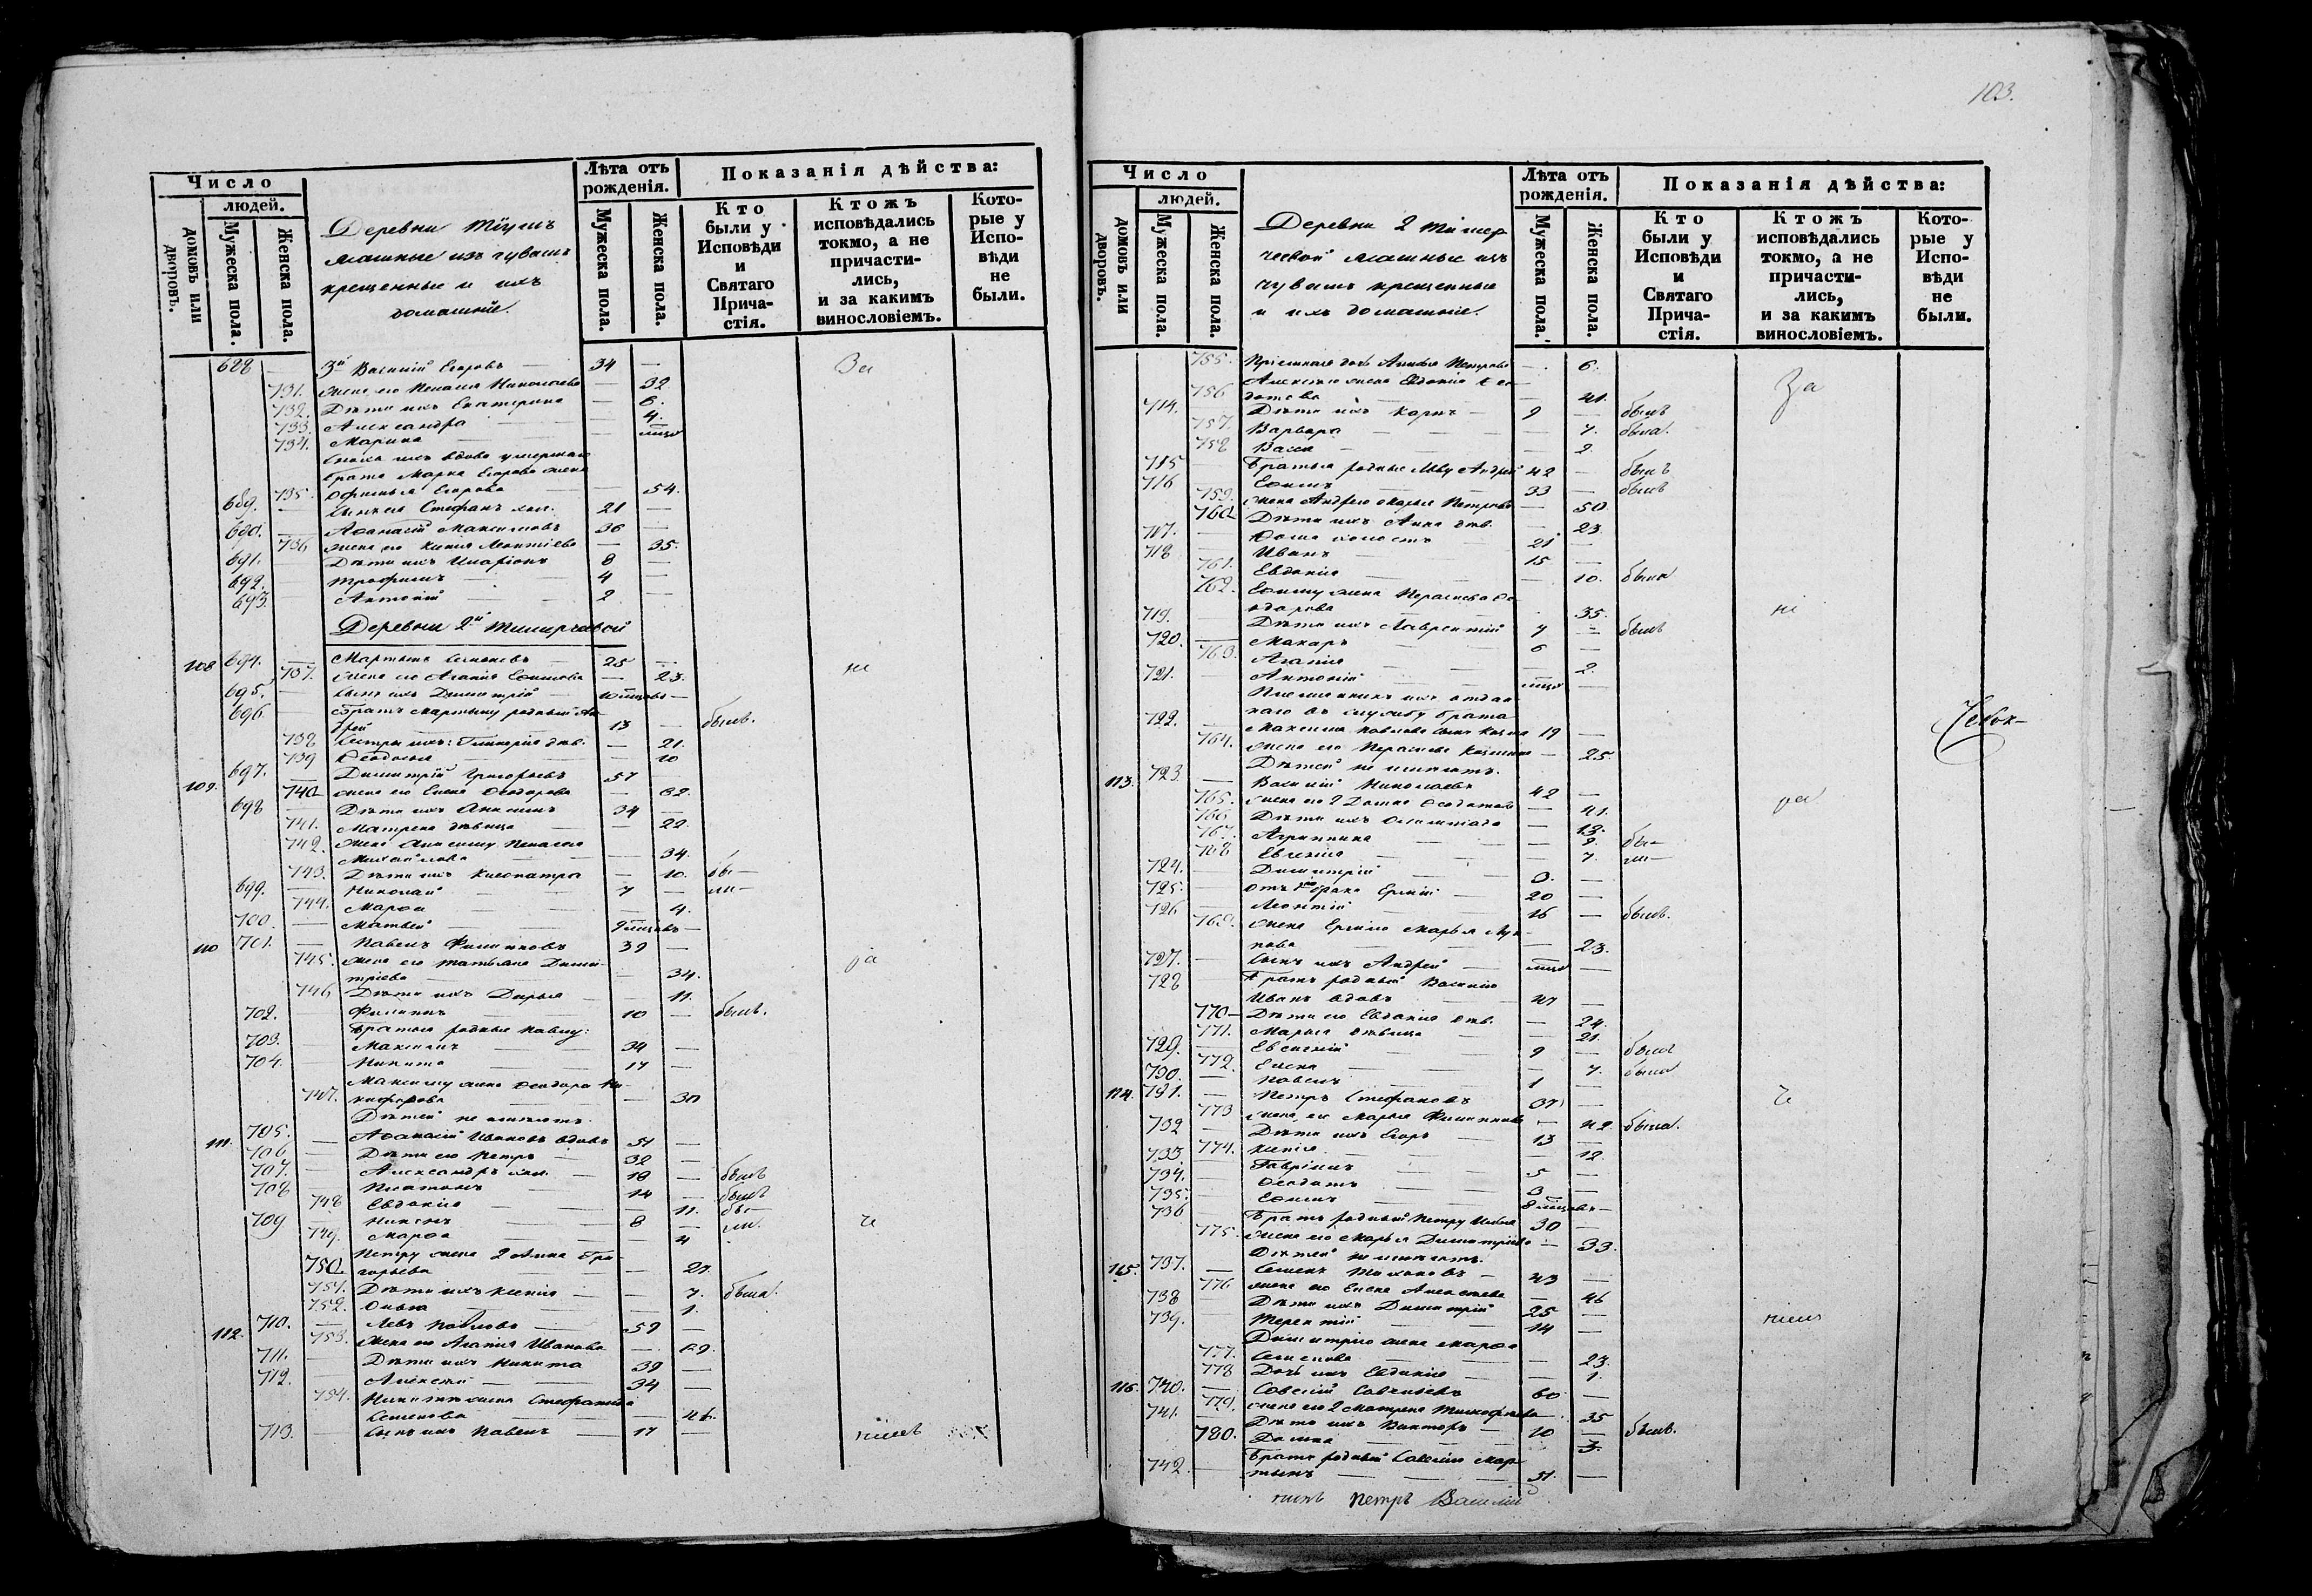 103.
Число
людей.
домовъ или дворовъ.
Мужеска пола.
Женска пола.
Деревни
машные изъ чувашъ
крещенные и ихъ
домашніе.
Лѣта отъ рожденія.
Мужеска пола.
Женска пола.
Показанія дѣйства:
Кто были у Исповѣди и Святаго Причастія.
Ктожъ исповѣдались токмо, а не причастились, и за какимъ винословіемъ.
Которые у Исповѣди не были.
688 — 3й Василій Егоровъ — 34 — За
731. жена его Пелагея Николаева — 32
732. Дѣти ихъ Екатерина — 6.
733. Александра — 4.
734. Марина —
вдова умершаго
брата Марка Егорова жена
735. Офимья Егорова — 54.
689. — Сынъ ея Стефанъ хол. 21 —
690. — Аѳанасій Максимовъ 36 —
736 жена его Ксенія Леонтіева — 35.
691. — Дѣти ихъ Иларіонъ 8 —
692. — Трофимъ — 4 —
693. — Антоній — 2 —
Деревни 2й
108 694. — Мартынъ Семеновъ — 25 — не
737. жена его Агаѳія Ефимова — 23.
695. — сынъ ихъ Димитрій —
696. — Братъ Мартыну родный Ан-
дрей 13 — былъ.
738 Сестры ихъ: Гликерія дѣв. — 21.
739 Ѳеодосья — 10
109. 697. — Димитрій Григорьевъ 57 —
740 жена его Елена Ѳеодорова — 62.
698 — Дѣти ихъ Анисимъ 34 —
741. Матрена дѣвица — 22.
742. жена Анисиму Пелагея
Михайлова — 34.
743. Дѣти ихъ Клеопатра — 10. бы—
699. — Николай — 7 — ли—
744. Марѳа — 4.
700. — Матвей — 9 мѣсцовъ —
110 701. — Павелъ Филипповъ 39 — ра
745. жена его Татьяна Дими-
тріева — 34.
746 Дѣти ихъ Дарья — 11.
702. — Филиппъ — 10 — былъ.
Братья родные Павлу:
703. — Максимъ — 34 —
704. — Никита — 17 —
Максиму жена Ѳеодора Ни-
747. кифорова — 30
Дѣтей не имѣютъ.
111. 705. — Аѳанасій Ивановъ вдовъ 51 —
706 — Дѣти его Петръ — 32 —
707. — Александръ хол. — 18 — былъ
708 — Платонъ — 14 — былъ
748 Евдокія — 11. бы—
709 — Никонъ — 8 — ли.
749. Марѳа — 4
Петру жена 2 Анна Гри-
750. горьева — 27.
751. Дѣти ихъ Ксенія — 7. была.
752. Ольга — 1.
112. 710. — Левъ Павловъ — 59 —
753. жена его Агаѳія Ивановa — 69.
711. — Дѣти ихъ Никита 39 —
712. — Алексѣй — 34 —
754. Никитѣ жена Стефанида
Семенова — 46.
713. — Сынъ ихъ Павелъ — 17 —
Число
людей.
домовъ или дворовъ.
Мужеска пола.
Женска пола.
Деревни 2
чевой машные изъ
чувашъ крещенные
и ихъ домашніе.
Лѣта отъ рожденія.
Мужеска пола.
Женска пола.
Показанія дѣйства:
Кто были у Исповѣди и Святаго Причастія.
Ктожъ исповѣдались токмо, а не причастились, и за какимъ винословіемъ.
Которые у Исповѣди не были.
755. дочь Петрова — 6.
Алексѣю жена Евдокія Ѳео-
756 дотова — 41. За
714. — Дѣти ихъ Карпъ — 9 — былъ
757. Варвара — 7. была.
758 Васса — 2.
715 — Братья родные Льву Андрей 42 — былъ
716 — Ефимъ — 33 — былъ
759. жена Андрею Марья Петрова — 50
760. Дѣти ихъ Анна дѣв. — 23.
717. — Ѳома холостъ 21 —
718 — Иванъ — 15 —
761. Евдокія — 10. была
762. Ефиму жена Ѳе-
одорова — 35. не
719. — Дѣти ихъ Лаврентій 7 — былъ
720. — Макаръ — 6 —
763. Агаѳія — 2.
721. — Антоній —
Племянникъ ихъ отдан-
наго въ службу брата
722. — Максима Павлова сынъ Козма 19 —
764. жена его — 25.
Дѣтей не имѣютъ.
113. 723. — Василій Николаевъ 42 — ра
765. жена его 2 Домна Ѳеодотова — 41.
766 Дѣти ихъ Олимпіада — 13.
767. Агриппина — 9. бы—
768 Евгенія — 7. ли—
724. — Димитрій — 3. —
725. — Отъ 1го брака 20 —
726 — Леонтій — 16 — былъ.
769. жена Марья Лу-
пова — 23.
727. — Сынъ ихъ Андрей —
728 — Братъ родный Василію
Иванъ вдовъ — 47 —
770 Дѣти его Евдокія дѣв. — 24.
771. Марья дѣвица — 21.
729. — Евсигній — 9 — былъ
772. Елена — 7. была
730. — Павелъ — 1 —
114. 731. — Петръ Стефановъ 37 —
773 жена его Марья Филиппова — 42. была.
732 — Дѣти ихъ Егоръ — 13 —
774. Ксенія — 12
733. — Гавріилъ — 5 —
734. — Ѳеодотъ — 3 —
735. — Ефимъ — 8 мѣсцовъ —
736 — Братъ родный Петру 30 —
775. жена его Марья Димитріева — 33.
Дѣтей не имѣютъ.
115. 737. — Семенъ Тихоновъ — 43 —
776 жена его Елена Алексѣева — 46
738 — Дѣти ихъ Димитрій 25 —
739. — Терентій — 14 —
Димитрію жена Марѳа
777. Семенова — 23.
778 Дочь ихъ Евдокія — 1.
116. 740. — Савелій Савельевъ 60 —
779. жена его 2 Матрена Тимофѣева — 35
741. — Дѣти ихъ Викторъ — 10 — былъ.
780. Домна — 3.
742 — Братъ родный Савелію Мар-
тынъ — 51. —
Петръ Василій